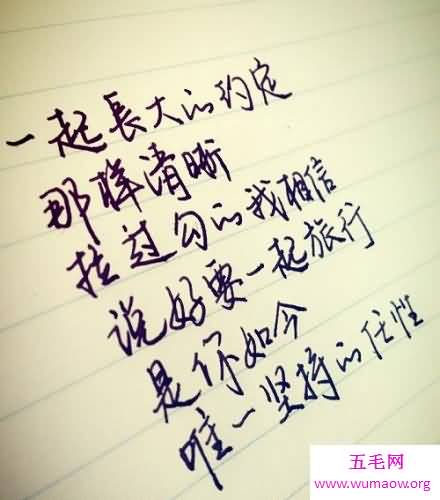 一起長大的约定
那样清晰
拉过勾的我相信
说好要一起旅行
是你如今
唯一坚持的任性
五毛网
www.wumaow.org